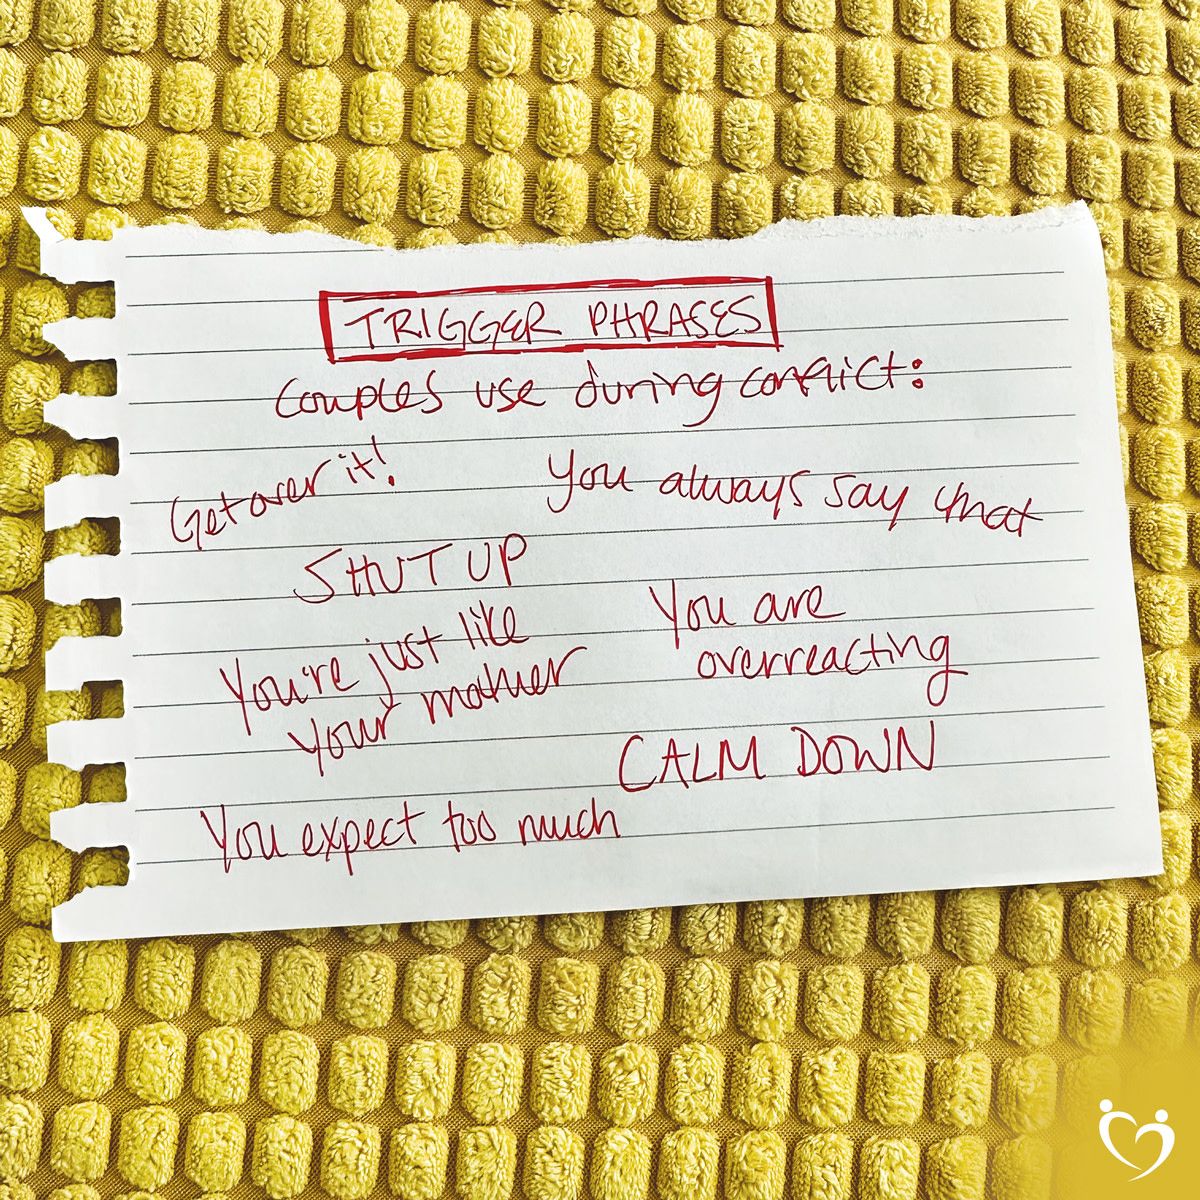 TRIGGER PHRASES
Couples use during conflict:
Get over it!
You always say that
SHUT UP
You are
overreacting
You're just like
your mother
CALM DOWN
You expect too much